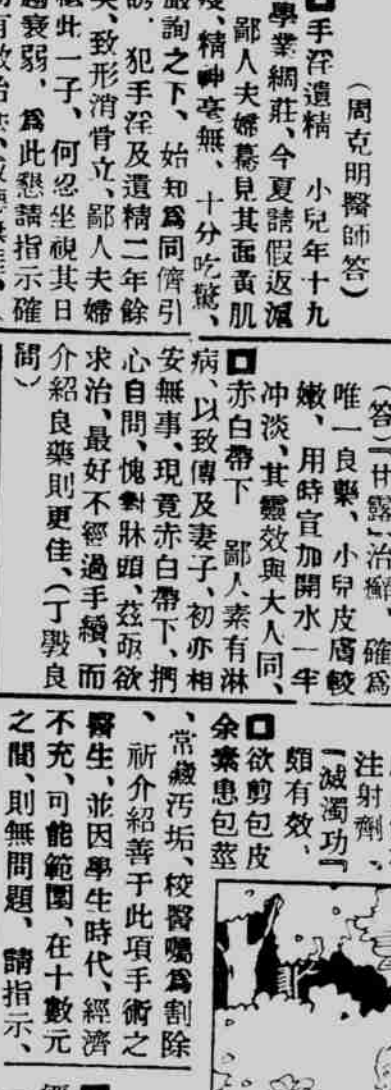 （周克明醫師答）
手淫遺精 小兒年十九
學業綢莊、今夏請假返滬
鄙人夫婦驀見其面黃肌
瘦、精神毫無、十分吃驚、
嚴詢之下、始知爲同儕引
誘、犯手淫及遺精二年餘
矣、致形消骨立、鄙人夫婦
此一子、何忍坐視其日
趨衰弱、爲此懇請指示確
（答）「甘露」治癬 確爲
唯一良藥、小兒皮膚較
嫩、用時宜加開水一半
冲淡、其靈效與大人同、
赤白帶下 鄙人素有淋
病、以致傳及妻子、初亦相
安無事、現竟赤白帶下、捫
心自問、愧對牀頭、茲亟欲
求治、最好不經過手續、而
介紹良藥則更佳、（丁毅良
問）
注射劑、
「滅濁功」
頗有效、
欲剪包皮
余素患包莖
、常藏汚垢、校醫囑爲割除
、祈介紹善于此項手術之
醫生、並因學生時代、經濟
不充、可能範圍、在十數元
之間、則無問題、請指示、